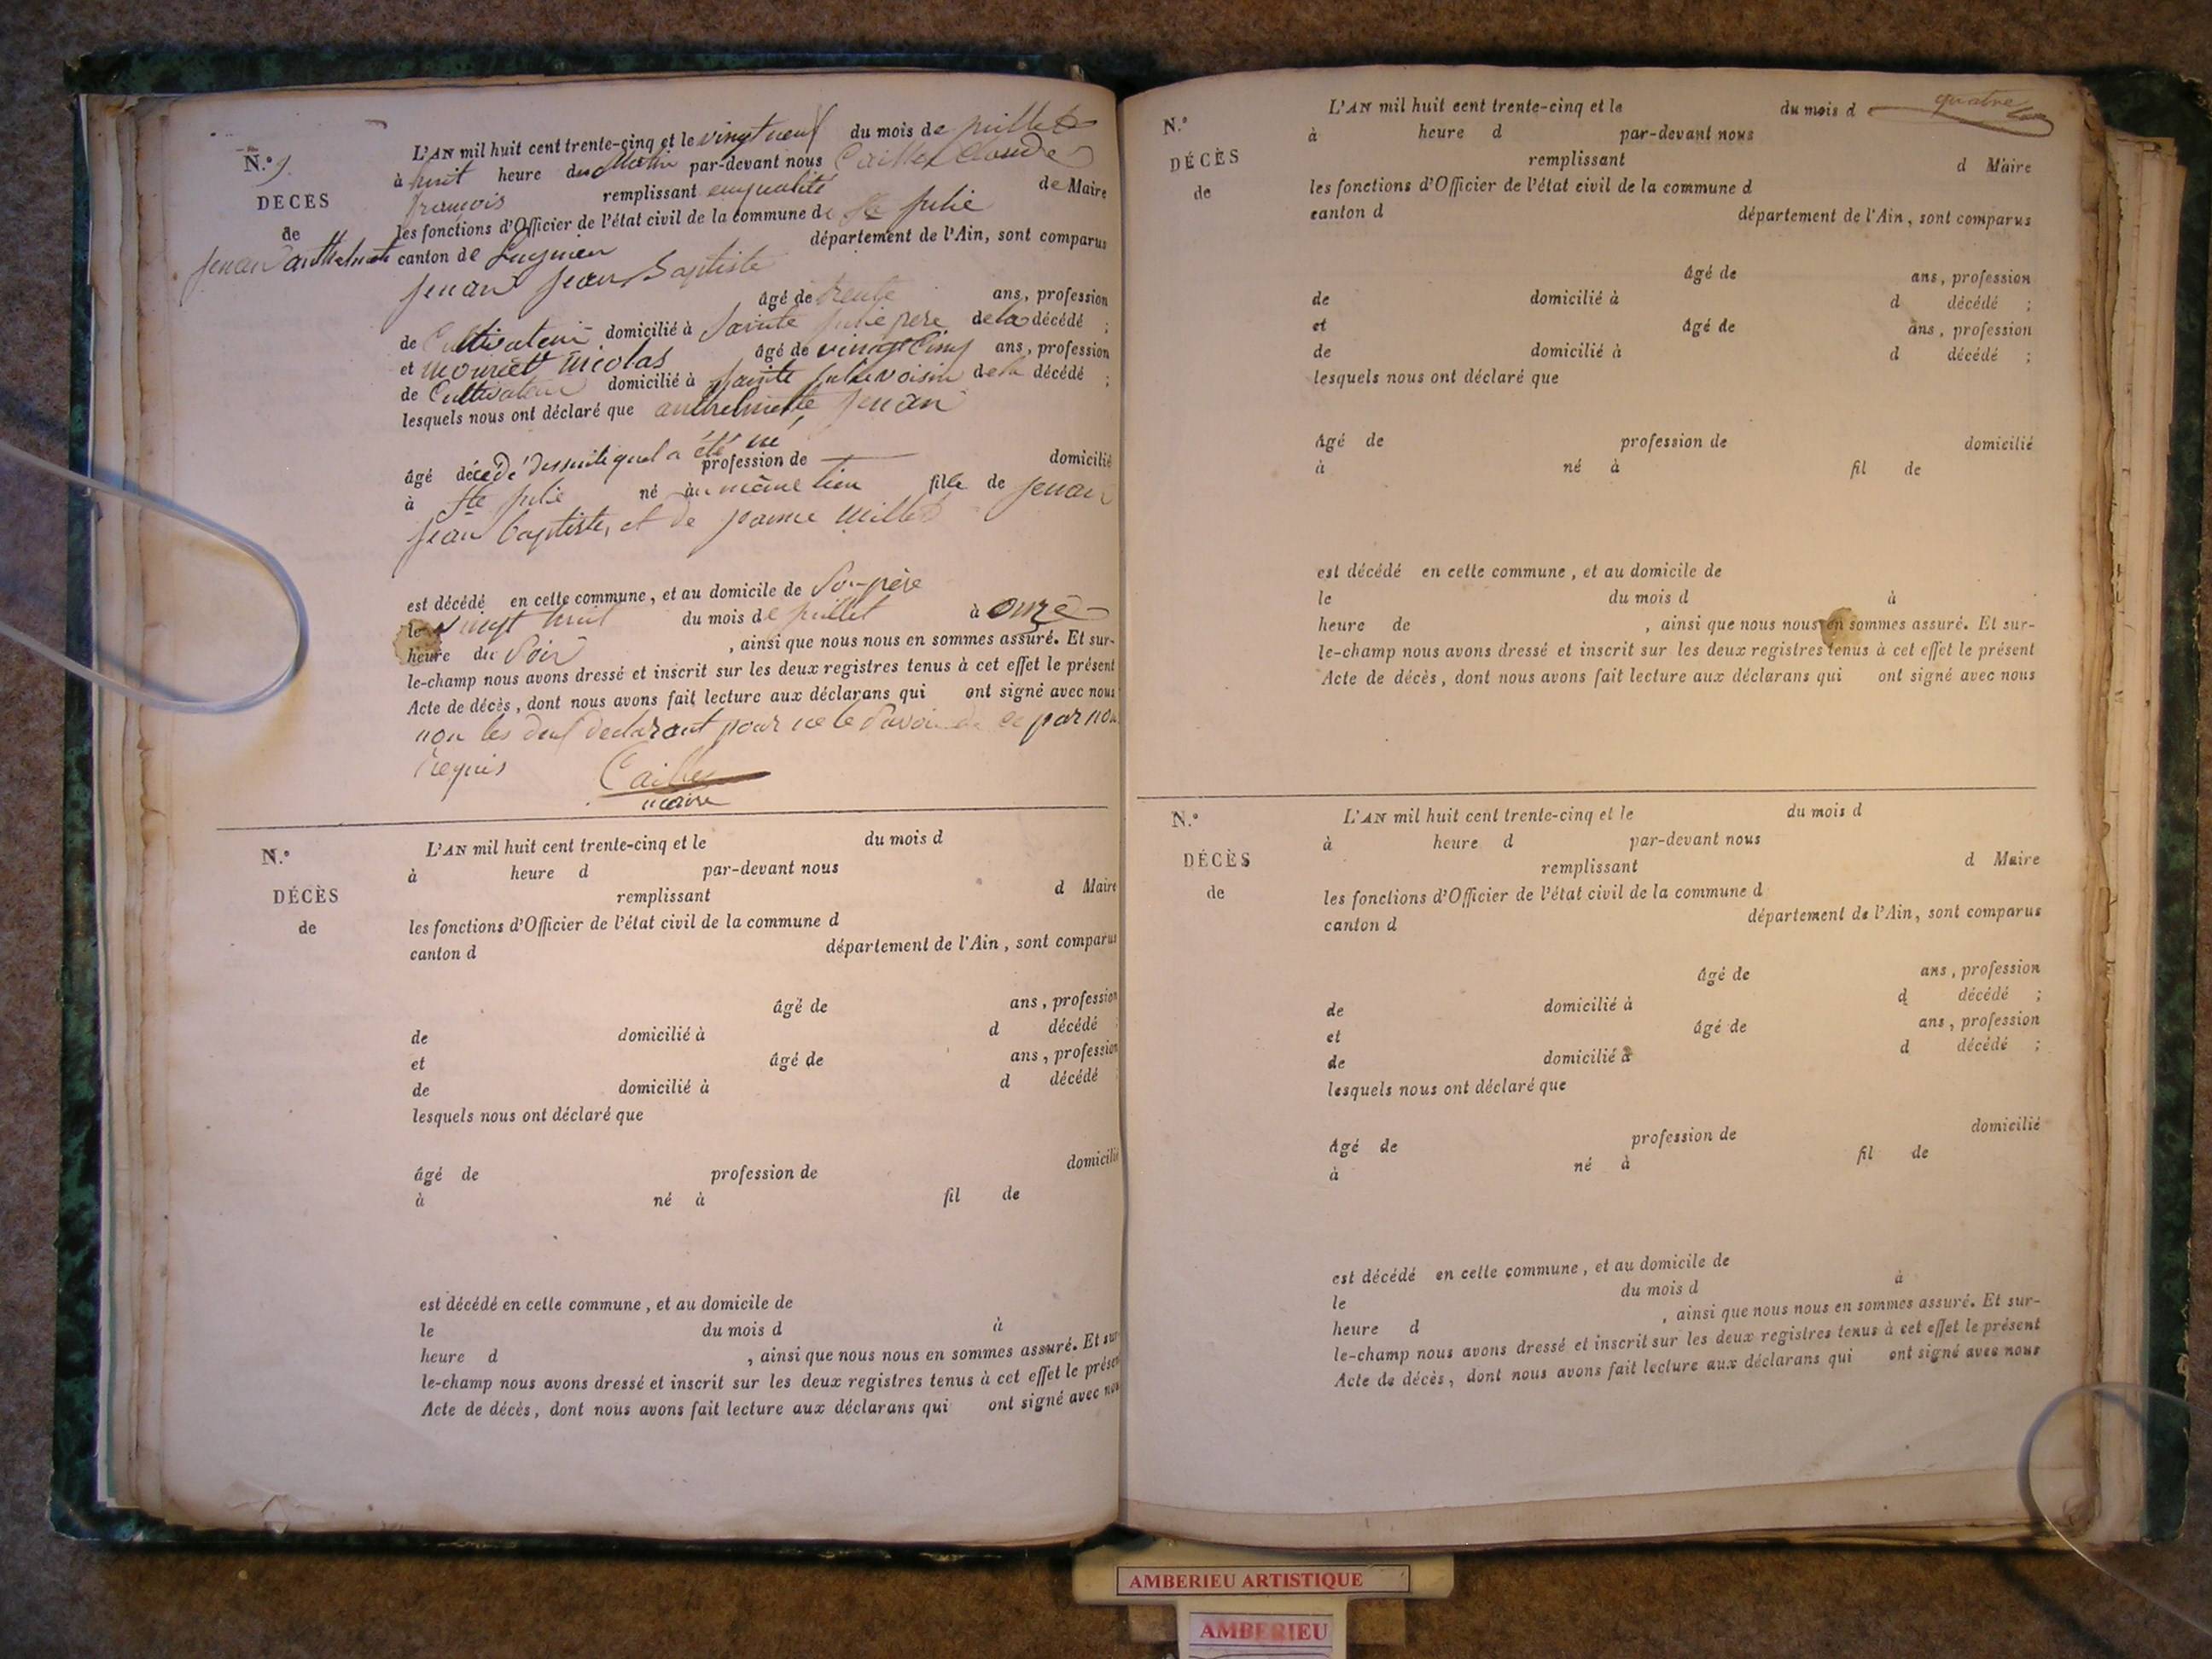 N.° 9.
DÉCÈS
de
Juenan anthelmette
L'AN mil huit cent trente-cinq et le vingt neuf du mois de juillet
à huit heure du Matin par-devant nous Caillet Claude
françois remplissant en qualité de Maire
les fonctions d'Officier de l'état civil de la commune de Ste julie
canton de Lagnieu département de l'Ain, sont comparus
jean Baptiste
âgé de trente ans, profession
de Cultivateur domicilié à Sainte julie pere de la décédé ;
et nicolas âgé de vingt Cinq ans, profession
de Cultivateur domicilié à Sainte julie voisin de la décédé ;
lesquels nous ont déclaré que anthelmette
âgé décédé dessuite quel a été né profession de — domicilié
à Ste julie né au même lieu fille de
jean baptiste, et de millet
est décédé en cette commune, et au domicile de Son père
le vingt huit du mois de juillet à onze
heure du Soir , ainsi que nous nous en sommes assuré. Et sur-
le-champ nous avons dressé et inscrit sur les deux registres tenus à cet effet le présent
Acte de décès, dont nous avons fait lecture aux déclarans qui ont signé avec nous
non les deux declarant pour ne le Savoir de ce par nous
requis
Caillet
maire
N.°
DÉCÈS
de
L'AN mil huit cent trente-cinq et le du mois d
à heure d par-devant nous
remplissant d Maire
les fonctions d'Officier de l'état civil de la commune d
canton d département de l'Ain, sont comparus
âgé de ans, profession
de domicilié à d décédé
et âgé de ans, profession
de domicilié à d décédé
lesquels nous ont déclaré que
âgé de profession de domicilié
à né à fil de
est décédé en cette commune, et au domicile de
le du mois d à
heure d , ainsi que nous nous en sommes assuré. Et sur
le-champ nous avons dressé et inscrit sur les deux registres tenus à cet effet le présen
Acte de décès, dont nous avons fait lecture aux déclarans qui ont signé avec nou
quatre
N.°
DÉCÈS
de
L'AN mil huit cent trente-cinq et le du mois d
à heure d par-devant nous
remplissant d Maire
les fonctions d'Officier de l'état civil de la commune d
canton d département de l'Ain, sont comparus
âgé de ans, profession
de domicilié à d décédé ;
et âgé de ans, profession
de domicilié à d décédé ;
lesquels nous ont déclaré que
âgé de profession de domicilié
à né à fil de
est décédé en cette commune, et au domicile de
le du mois d à
heure de , ainsi que nous nous en sommes assuré. Et sur-
le-champ nous avons dressé et inscrit sur les deux registres tenus à cet effet le présent
Acte de décès, dont nous avons fait lecture aux déclarans qui ont signé avec nous
N.°
DÉCÈS
de
L'AN mil huit cent trente-cinq et le du mois d
à heure d par-devant nous
remplissant d Maire
les fonctions d'Officier de l'état civil de la commune d
canton d département de l'Ain, sont comparus
âgé de ans, profession
de domicilié à d décédé ;
et âgé de ans, profession
de domicilié à d décédé ;
lesquels nous ont déclaré que
âgé de profession de domicilié
à né à fil de
est décédé en cette commune, et au domicile de
le du mois d à
heure d , ainsi que nous nous en sommes assuré. Et sur-
le-champ nous avons dressé et inscrit sur les deux registres tenus à cet effet le présent
Acte de décès, dont nous avons fait lecture aux déclarans qui ont signé avec nous
AMBERIEU ARTISTIQUE
AMBERIEU